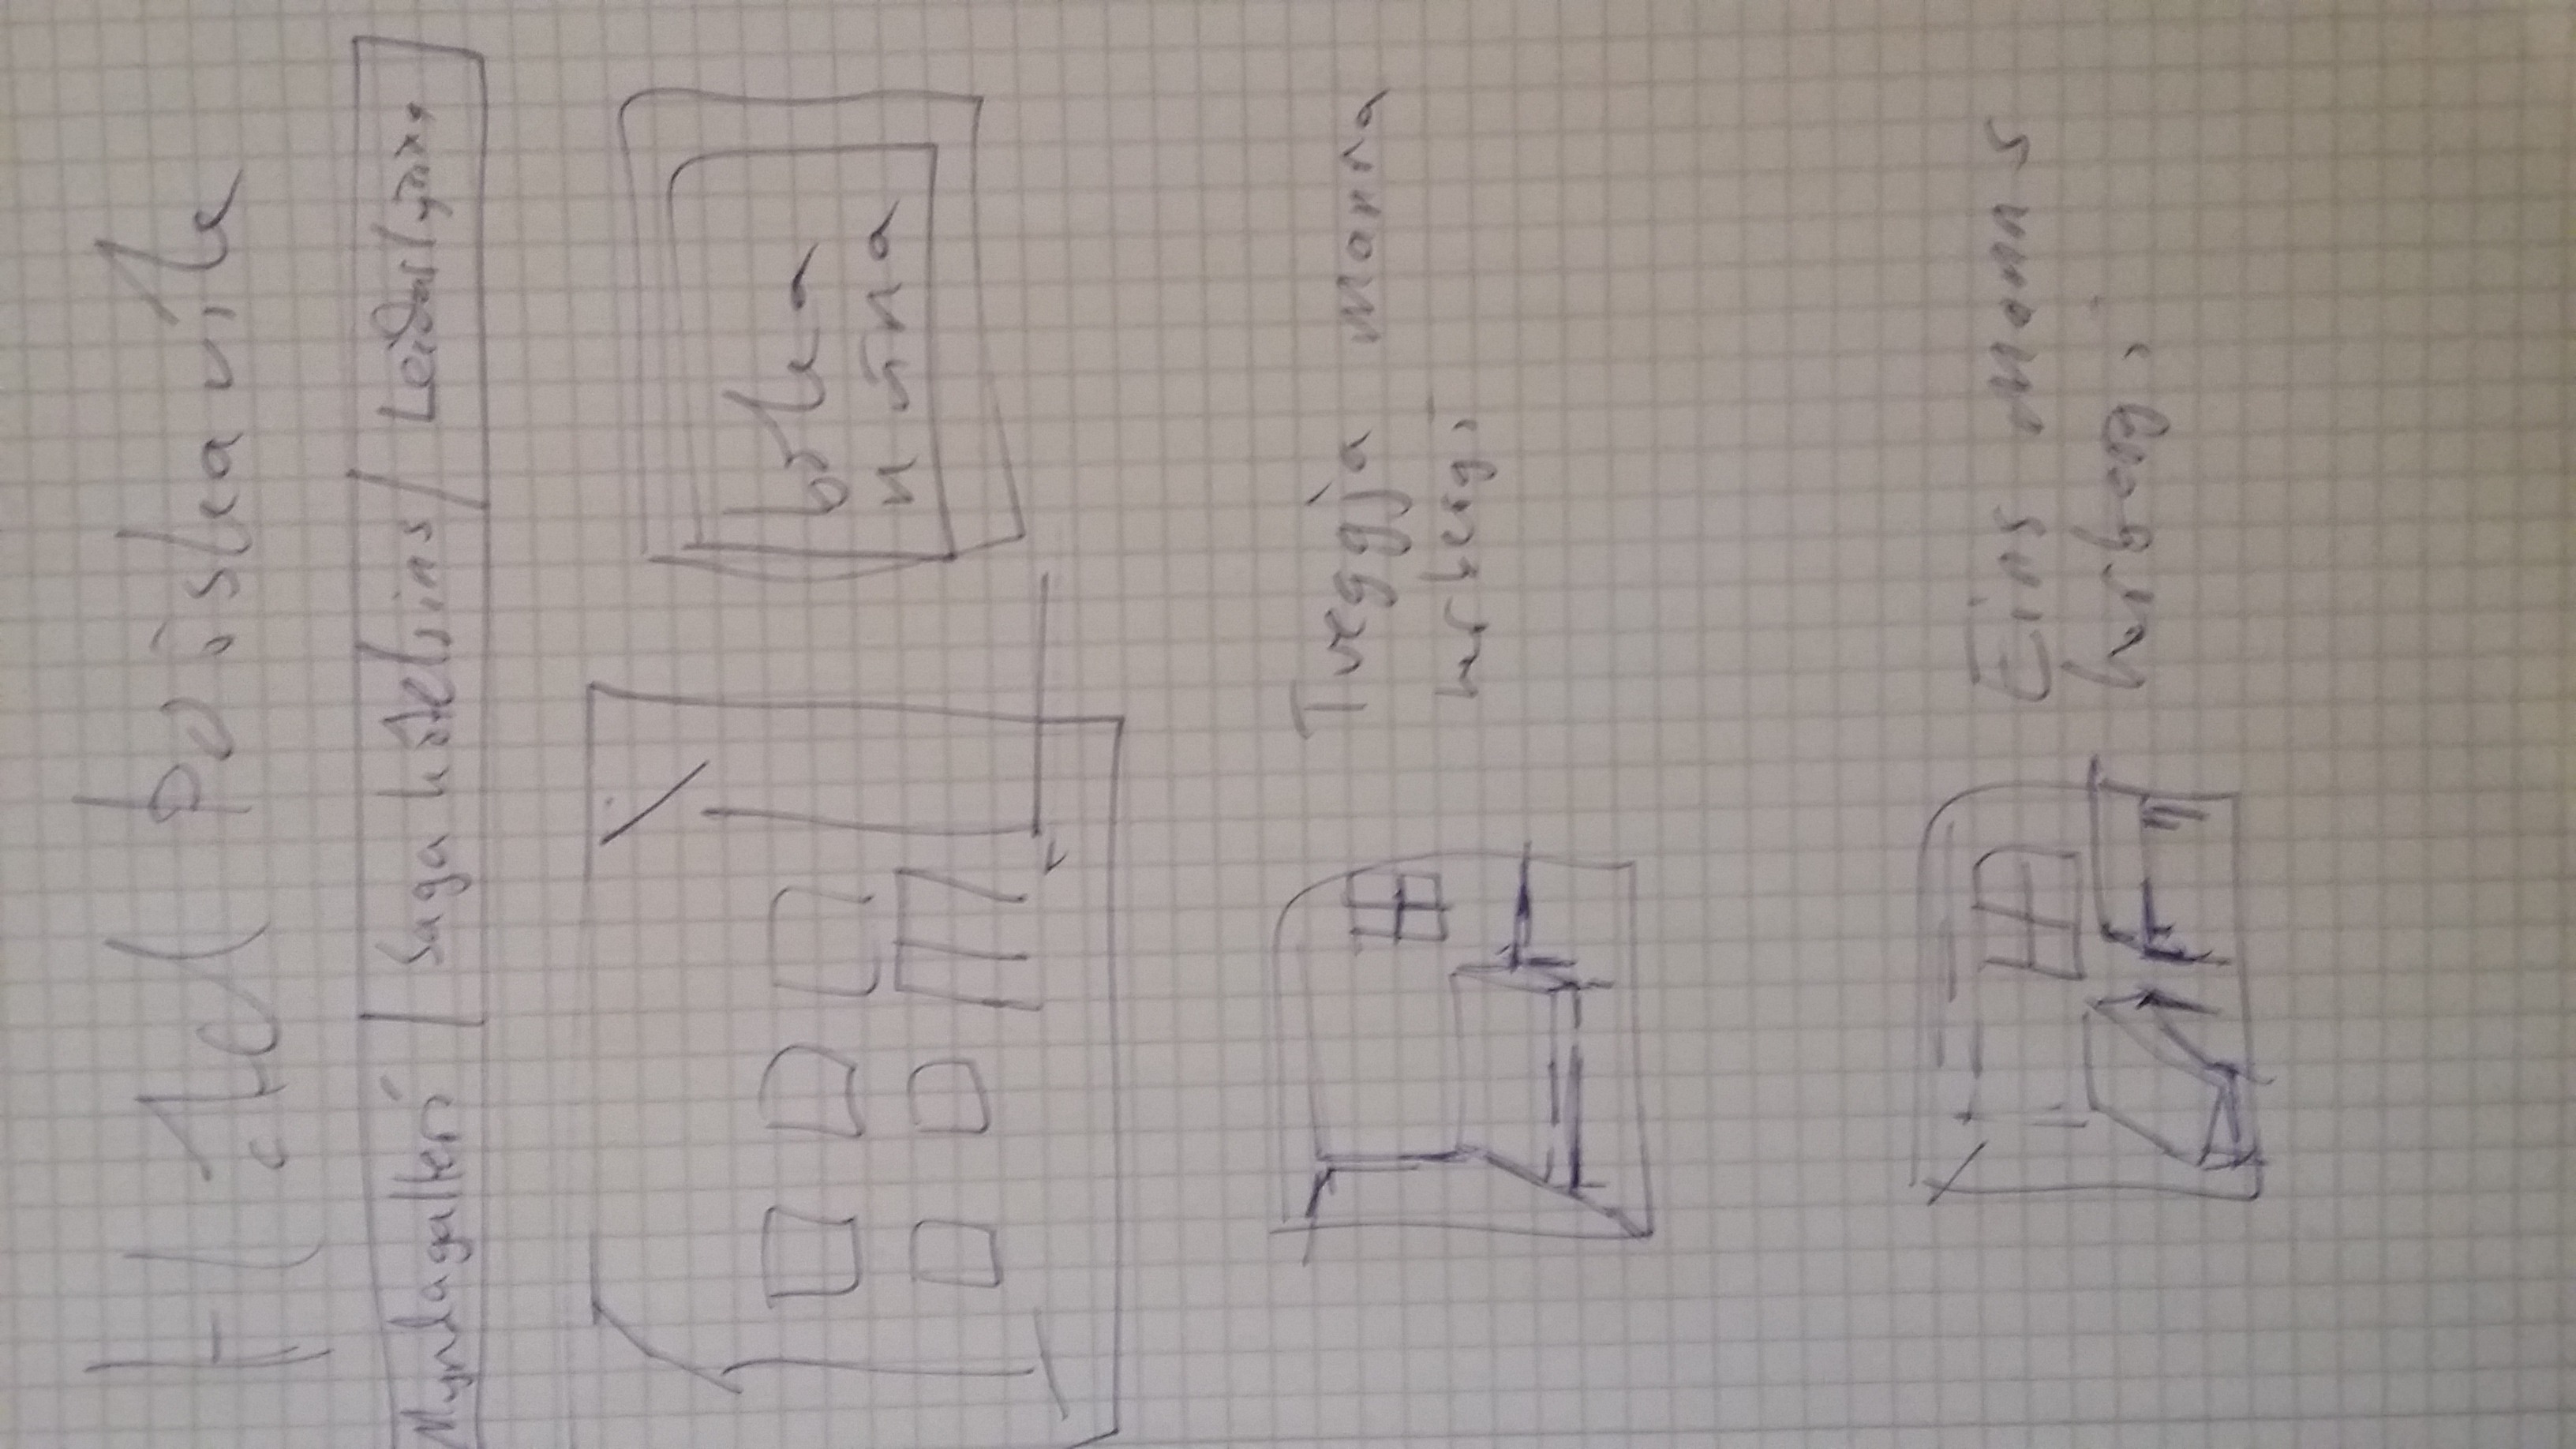 Hótel Þorskavík
Myndagallerí | Saga hótelsins | Leiðarlýsing
bóka
núna
Tveggja manna
herbergi
Eins manns
herbergi